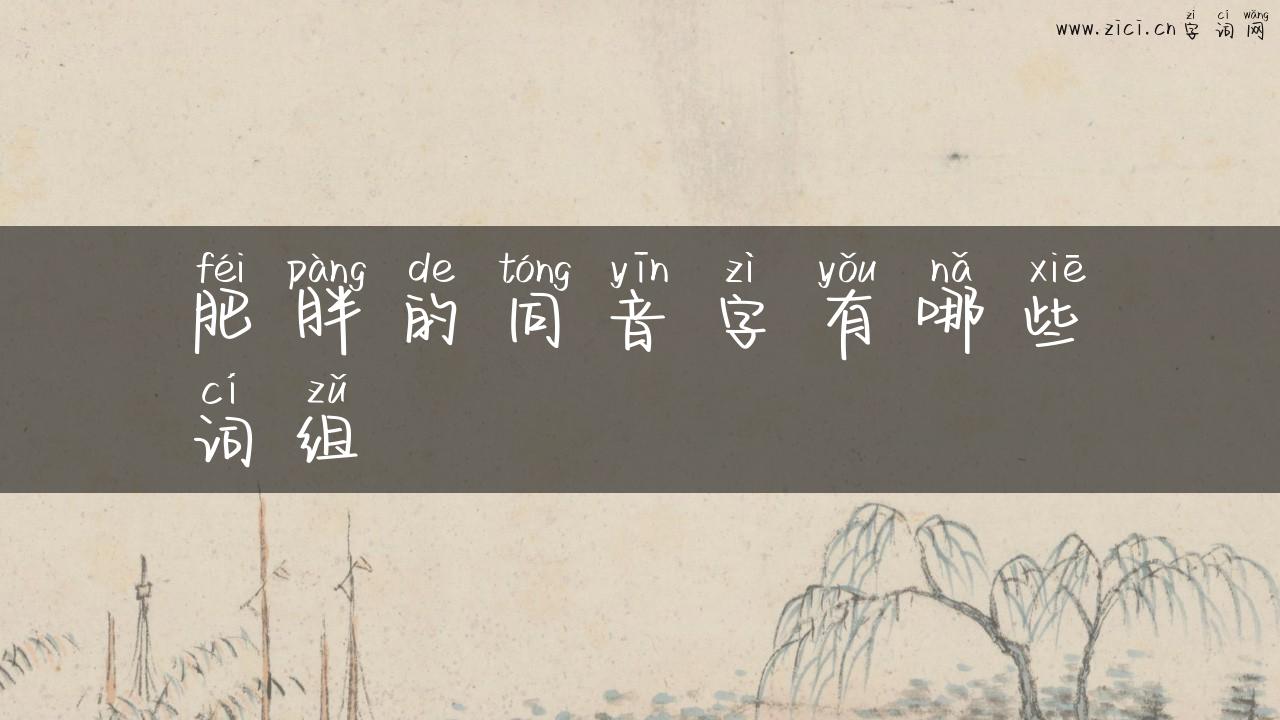 zì cí wǎng
www.zici.cn字词网
féi pàng de tóng yīn zì yǒu nǎ xiē
肥胖的同音字有哪些
cí zǔ
词组